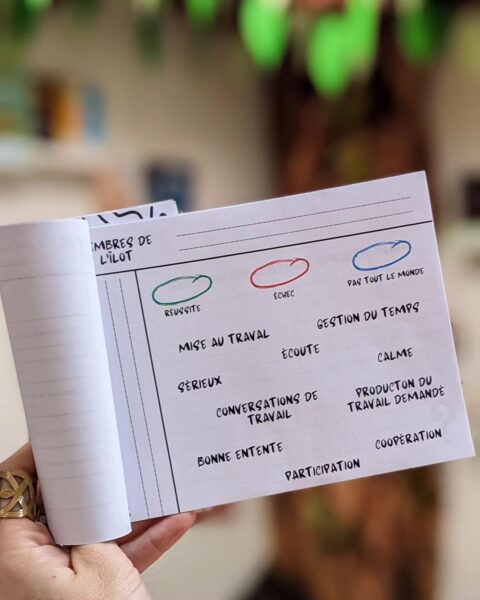 MBRES DE
L'ÎLOT
RÉUSSITE
ÉCHEC
PAS TOUT LE MONDE
MISE AU TRAVAL
GESTION DU TEMPS
ÉCOUTE
CALME
SÉRIEUX
CONVERSATIONS DE
TRAVAIL
PRODUCTON DU
TRAVAIL DEMANDÉ
BONNE ENTENTE
COOPÉRATION
PARTICIPATION